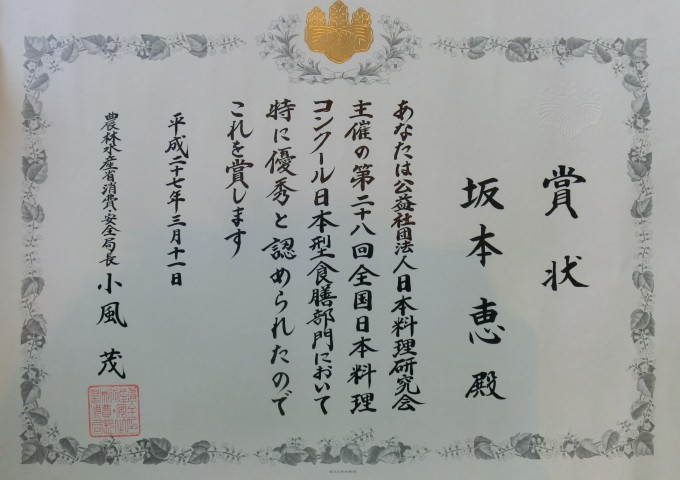 賞状
坂本恵殿
あなたは公益社団法人日本料理研究会
主催の第二十八回全国日本料理
コンクール日本型食膳部門において
特に優秀と認められたので
これを賞します
平成二十七年三月十一日
農林水産省消費・安全局長 小風 茂